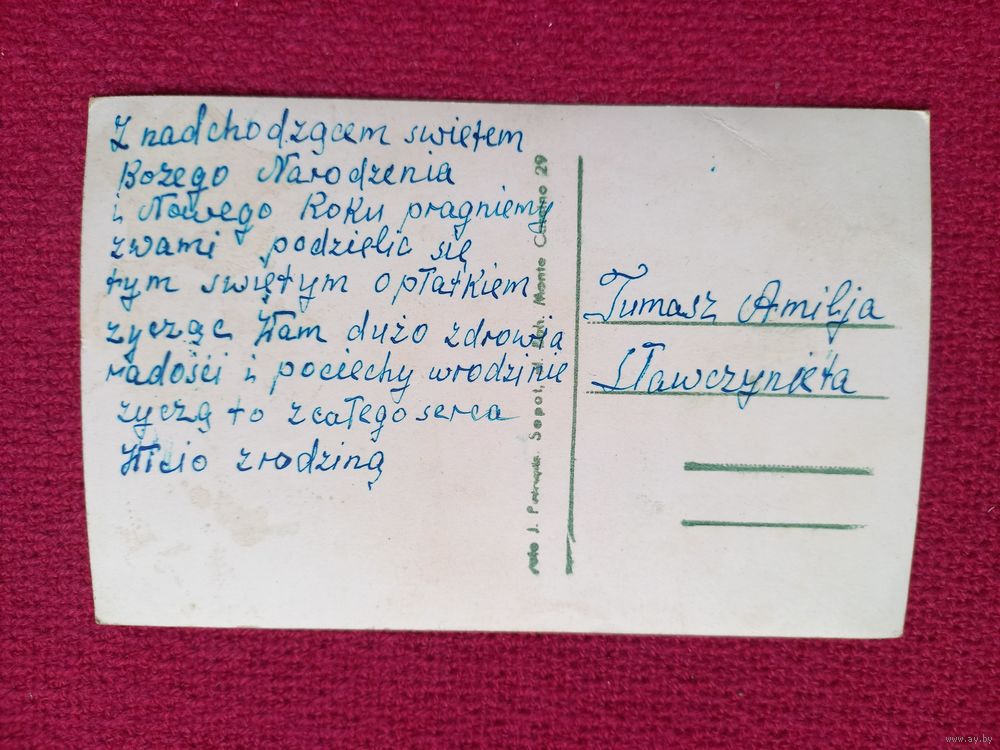 Z nadchodzącem swiętem
Bożego Narodzenia
i Nowego Roku pragniemy
zwami podzielic się
tym swiętym opłatkiem
zycząc Wam dużo zdrowia
radości i pociechy wrodzinie
zyczą to zcałego serca
zrodziną
Foto J. Sopot, ul. Boh. Monte Cassino 29
Tumasz Amilja
Sławczynieta
www.ay.by